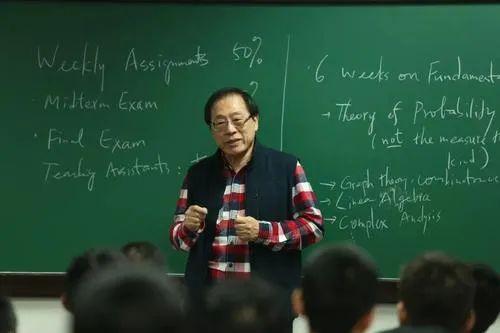 Weekly Assignments 50%
· Midterm Exam ?
· Final Exam
Teaching Assistants:
6 weeks on Fundament
→ Theory of Probability
(not the measure
kind)
→ Graph theory, combinatorics
→ Linear Algebra
→ Complex Analysis